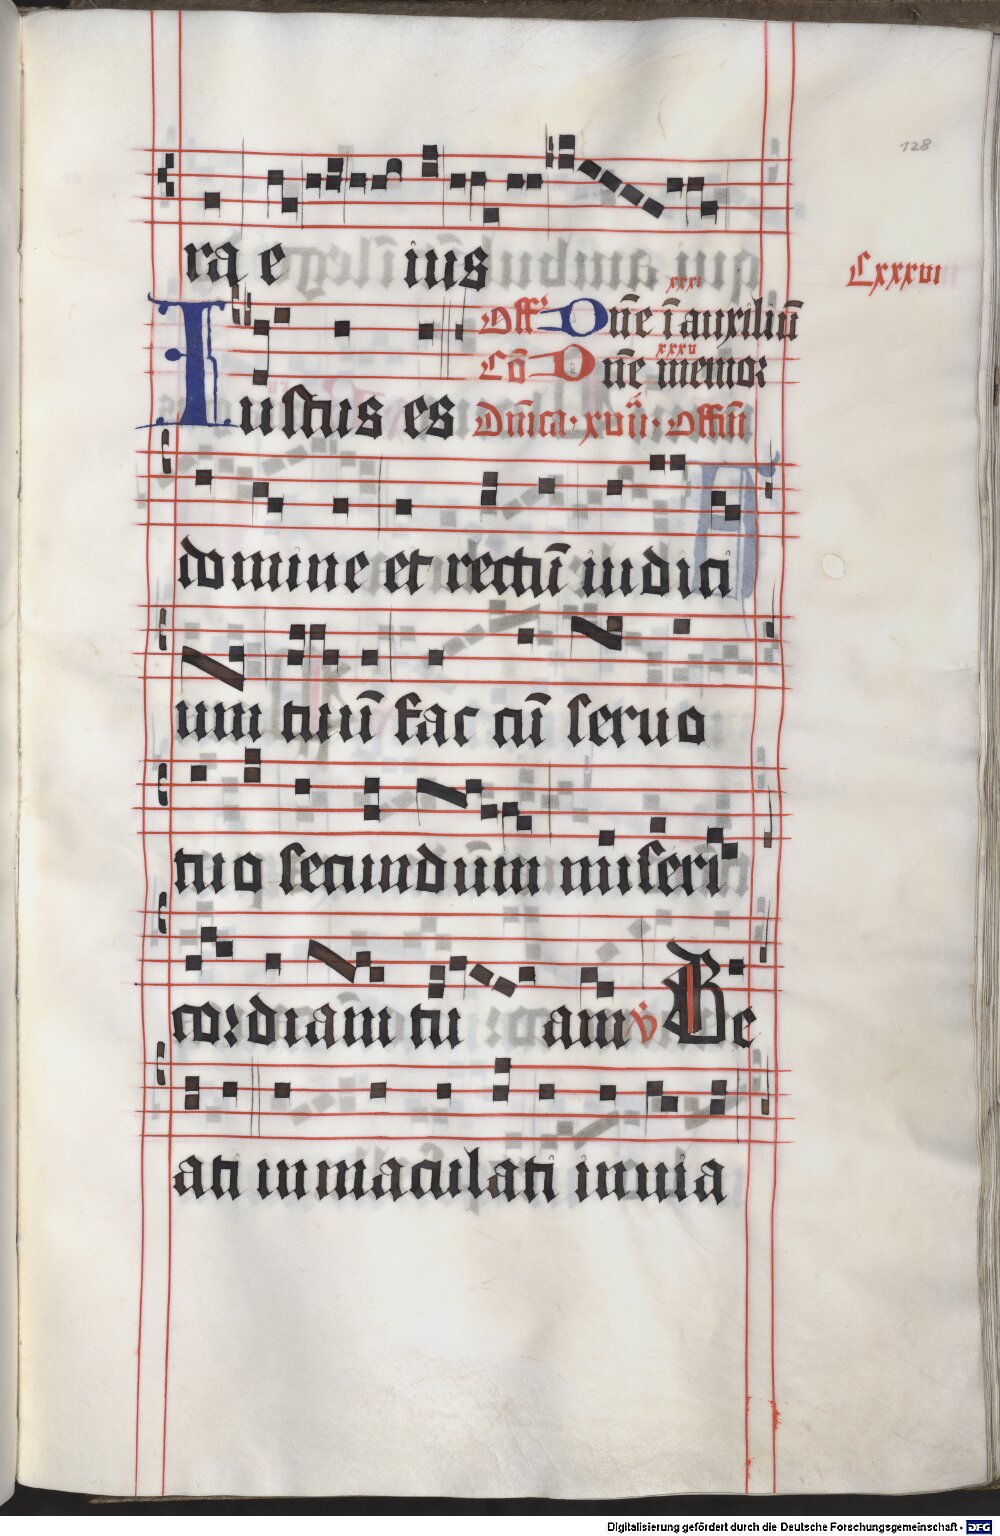 128
ra e ius
Cxxxvi
xxxi
Off Dñe ĩ auxiliũ
xxxv
Cõ Dñe memor
Iustus es Dñica xvii Offm̃
domine et rectũ iudici
um tuũ fac cũ seruo
tuo secundũm miseri
cordiam tu am ℣ Be
ati immaculati in uia
Digitalisierung gefördert durch die Deutsche Forschungsgemeinschaft - DFG